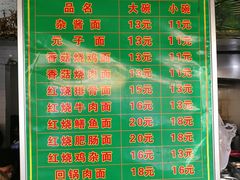 品名 大碗 小碗
杂酱面 13元 11元
元子面 13元 11元
香菇烧鸡面 13元 11元
香菇烧肉面 13元 11元
红烧排骨面 15元 13元
红烧牛肉面 16元 13元
红烧鳝鱼面 20元 18元
红烧肥肠面 20元 16元
红烧鸡杂面 16元 13元
回锅肉面 18元 16元